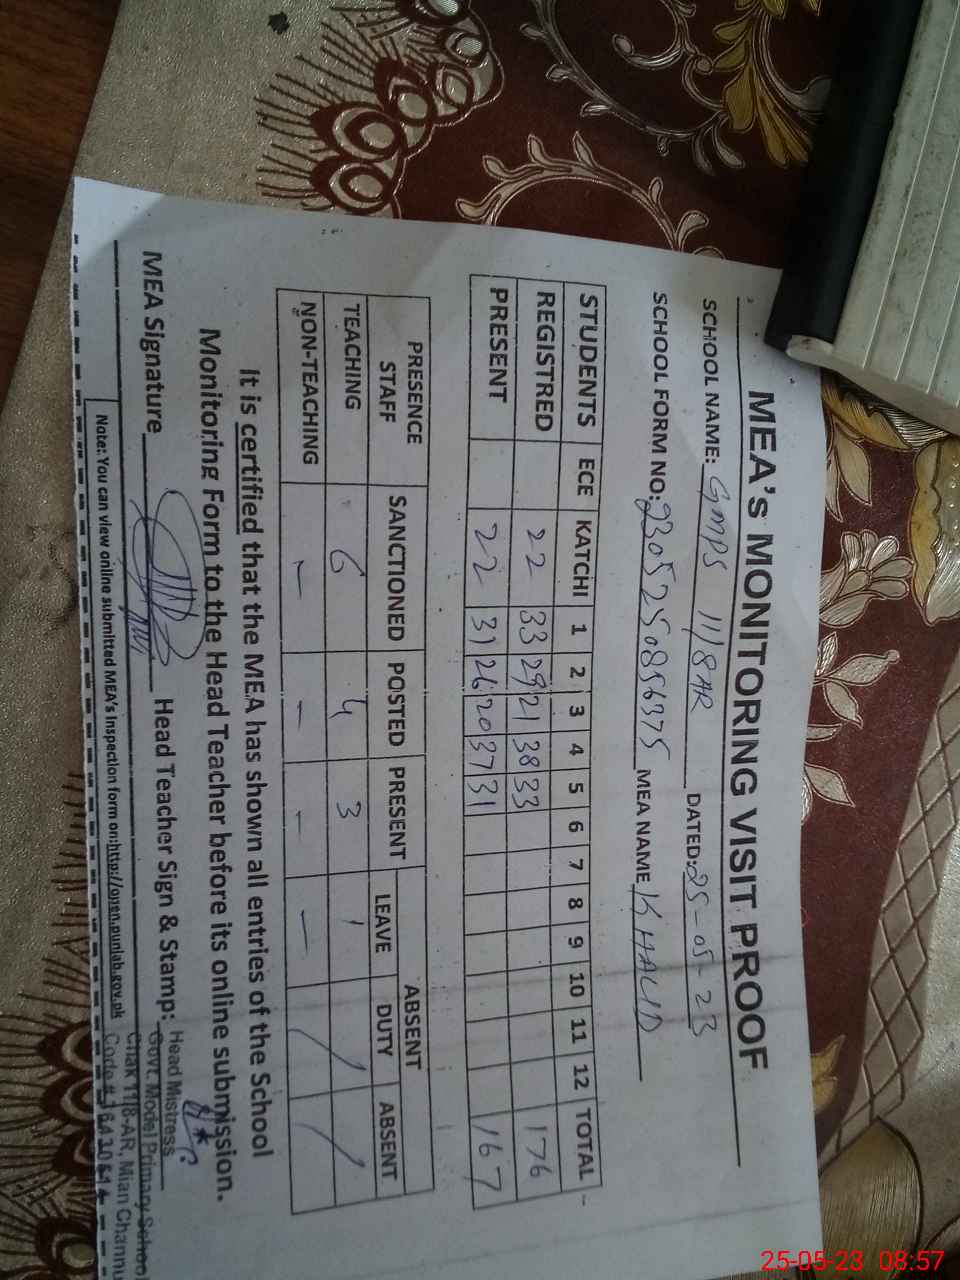 MEA's MONITORING VISIT PROOF
SCHOOL NAME: GMPS 11/8AR DATED: 25-05-23
SCHOOL FORM NO: 230525086375 MEA NAME KHALID
STUDENTS ECE KATCHI 1 2 3 4 5 6 7 8 9 10 11 12 TOTAL
REGISTRED 22 33 29 21 38 33 176
PRESENT 22 31 26 20 37 31 167
PRESENCE ABSENT
STAFF SANCTIONED POSTED PRESENT LEAVE DUTY ABSENT
TEACHING 6 4 3 1 / /
NON-TEACHING - - - -
It is certified that the MEA has shown all entries of the School
Monitoring Form to the Head Teacher before its online submission.
MEA Signature Head Teacher Sign & Stamp:
Head Mistress
Govt. Model Primary School
Chak 11/8-AR, Mian Channu
Note: You can view online submitted MEA's Inspection form on:http://open.punjab.gov.pk
25-05-23 08:57